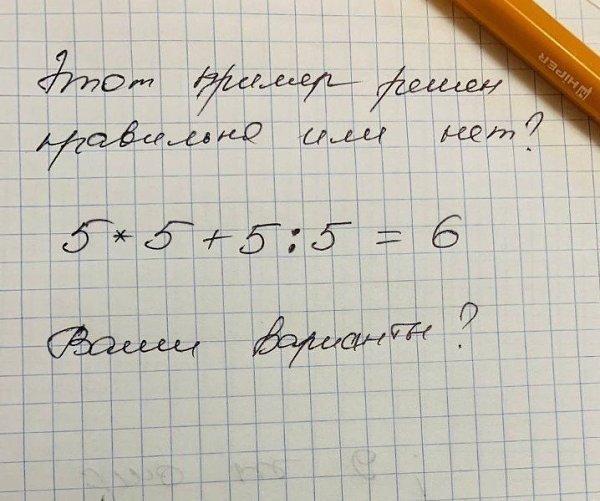 Этот пример решен
правильно или нет?
5 * 5 + 5 : 5 = 6
Ваши варианты?
HIPER